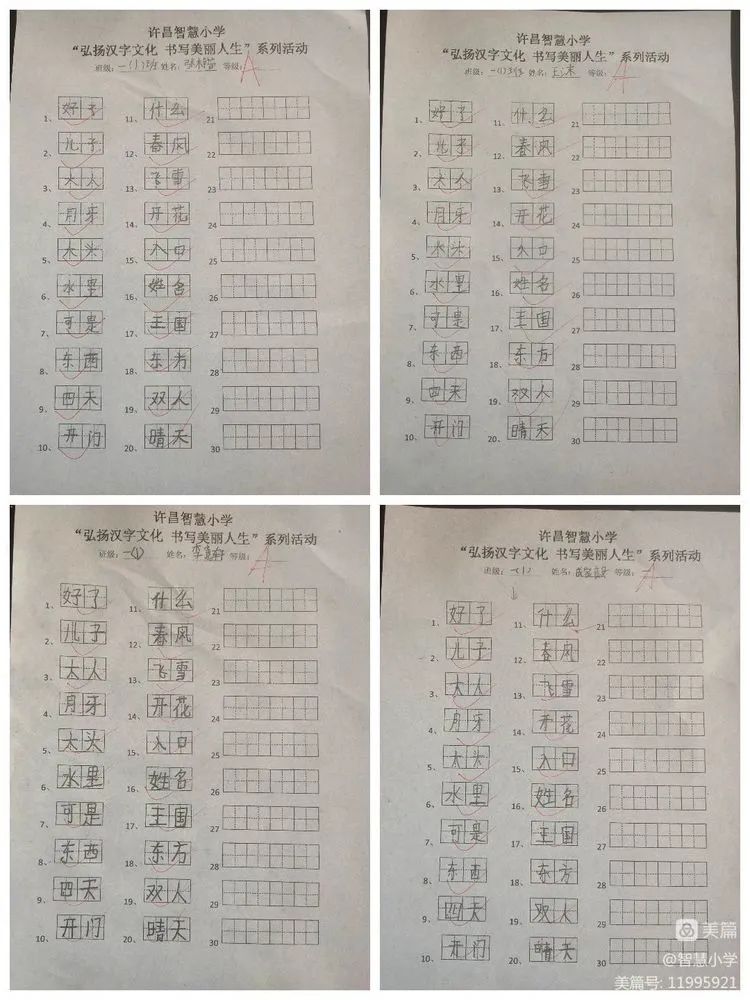 许昌智慧小学
“弘扬汉字文化 书写美丽人生”系列活动
班级：一(1)班 姓名： 等级：A
1、好了 11、什么 21
2、儿子 12、春风 22
3、大人 13、飞雪 23
4、月牙 14、开花 24
5、木头 15、入口 25
6、水里 16、姓名 26
7、可是 17、王国 27
8、东西 18、东方 28
9、四天 19、双人 29
10、开门 20、晴天 30
许昌智慧小学
“弘扬汉字文化 书写美丽人生”系列活动
班级：一(1)班 姓名： 等级：A
1、好了 11、什么 21
2、儿子 12、春风 22
3、大个 13、飞雪 23
4、月牙 14、开花 24
5、水头 15、入口 25
6、水里 16、姓名 26
7、可是 17、王国 27
8、东西 18、东方 28
9、四天 19、双人 29
10、开门 20、晴天 30
许昌智慧小学
“弘扬汉字文化 书写美丽人生”系列活动
班级：一(1) 姓名： 等级：A
1、好了 11、什么 21
2、儿子 12、春风 22
3、大人 13、飞雪 23
4、月牙 14、开花 24
5、木头 15、入口 25
6、水里 16、姓名 26
7、可是 17、王国 27
8、东西 18、东方 28
9、四天 19、双人 29
10、开门 20、晴天 30
许昌智慧小学
“弘扬汉字文化 书写美丽人生”系列活动
班级：一(1) 姓名： 等级：A
1、好了 11、什么 21
2、儿子 12、春风 22
3、大人 13、飞雪 23
4、月牙 14、开花 24
5、木头 15、入口 25
6、水里 16、姓名 26
7、可是 17、王国 27
8、东西 18、东方 28
9、四天 19、双人 29
10、开门 20、晴天 30
美篇
@智慧小学
美篇号: 11995921